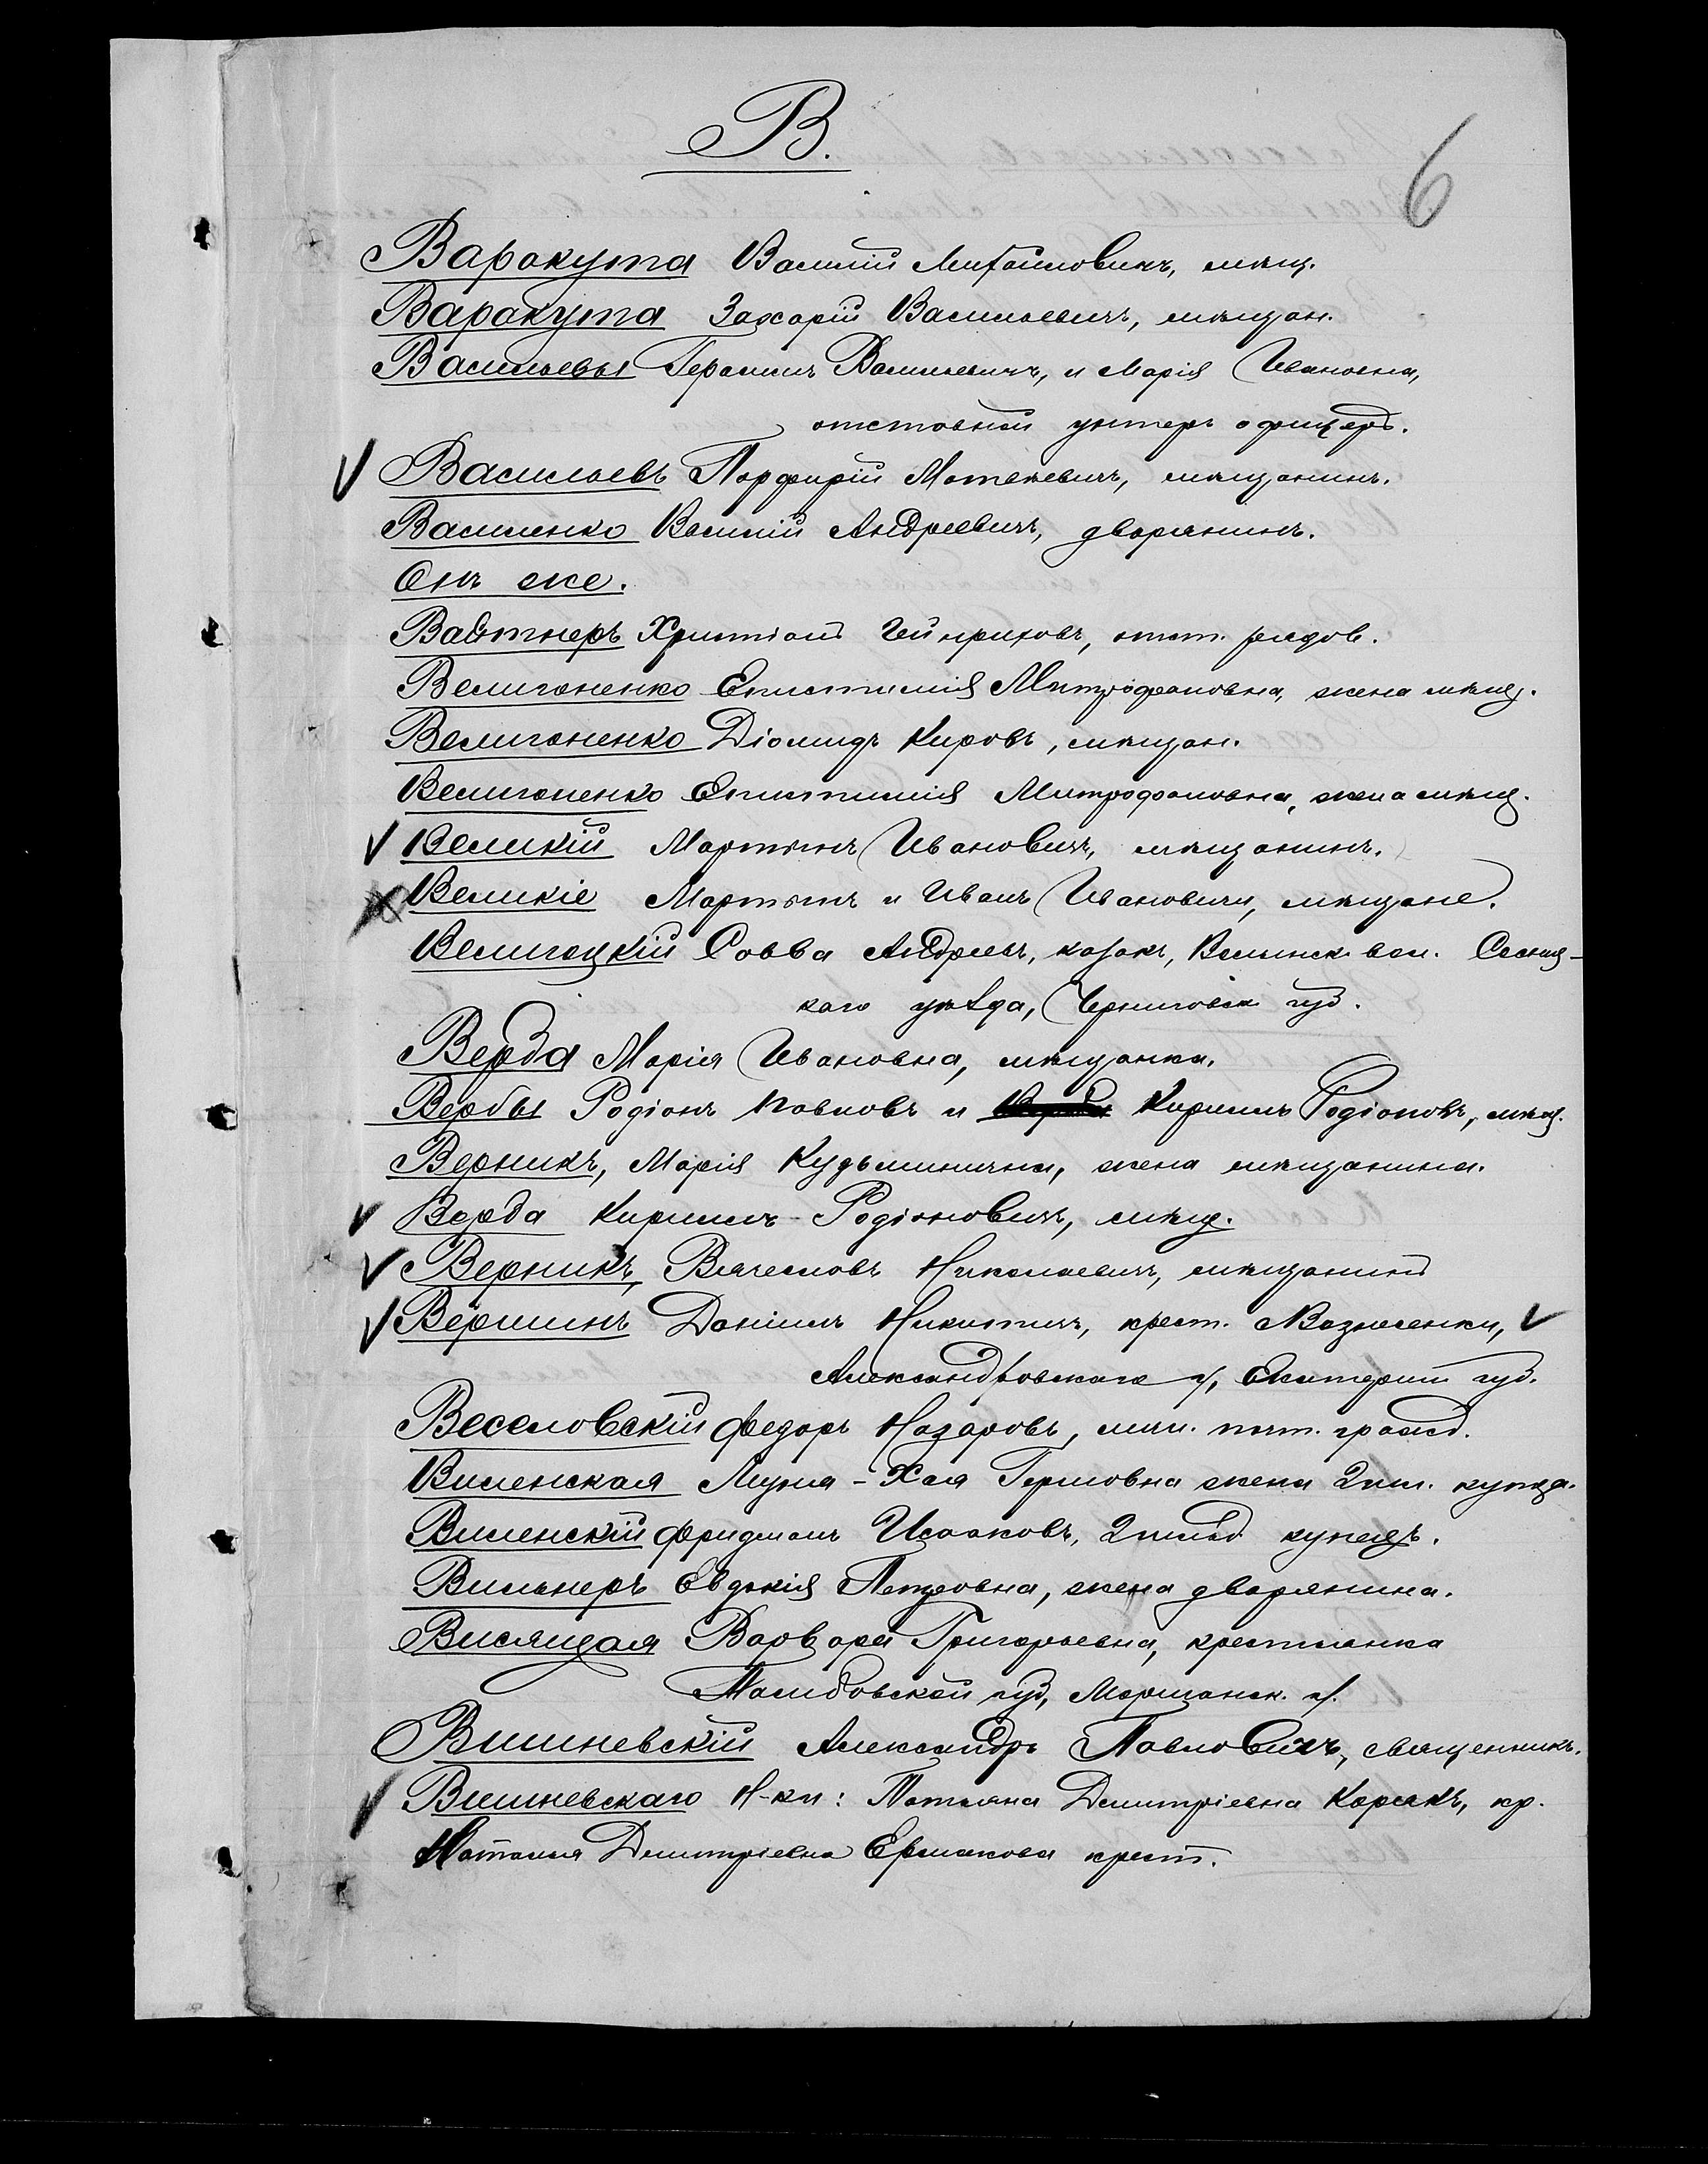 В.
6
Варакута Василій Михайловичъ, мѣщ.
Варакута Захарій Васильевичъ, мѣщан.
Васильевы Герасимъ Васильевичъ, и Марія Ивановна,
отставной унтеръ офицеръ.
Васильевъ Порфирій Матвѣевичъ, мѣщанинъ.
Василенко Василій Андреевичъ, дворянинъ.
Онъ же.
Христіанъ Гейнриховъ, отст. рядов.
Велигоненко Епистимія Митрофановна, жена мѣщ.
Велигоненко Діомидъ Кировъ, мѣщан.
Велигоненко Епистимія Митрофановна, жена мѣщ.
Великій Мартынъ Ивановичъ, мѣщанинъ.
Великіе Мартынъ и Иванъ Ивановичи, мѣщане.
Велигоцкій Савва Андреевъ, казакъ, вол. Сосниц-
каго уѣзда, Черниговск губ.
Верба Марія Ивановна, мѣщанка.
Вербы Родіонъ Павловъ и Кириллъ Родіоновъ, мѣщ.
Верникъ, Марія Кузьминична, жена мѣщанина.
Верба Кириллъ Родіоновичъ, мѣщ.
Верникъ, Вячеславъ Николаевичъ, мѣщанинъ
Вершинъ Даніилъ Никитичъ, крест. с. Вознесенки,
Александровскаго у, Екатерин губ.
Веселовскій Федоръ Назаровъ, личн. почт. гражд.
Виленская Мууня-Хая Герцовна жена 2 гил. купца.
Виленскій Фридманъ Исааковъ, 2 гильд купецъ.
Вильнеръ Евдокія Петровна, жена дворянина.
Висящая Варвара Григорьевна, крестьянка
Тамбовской губ, Моршанск. у.
Вишневскій Александръ Павловичъ, священникъ.
Вишневскаго Н-ки: Татьяна Димитріевна Корякъ, кр.
Наталія Димитріевна Ермакова крест.